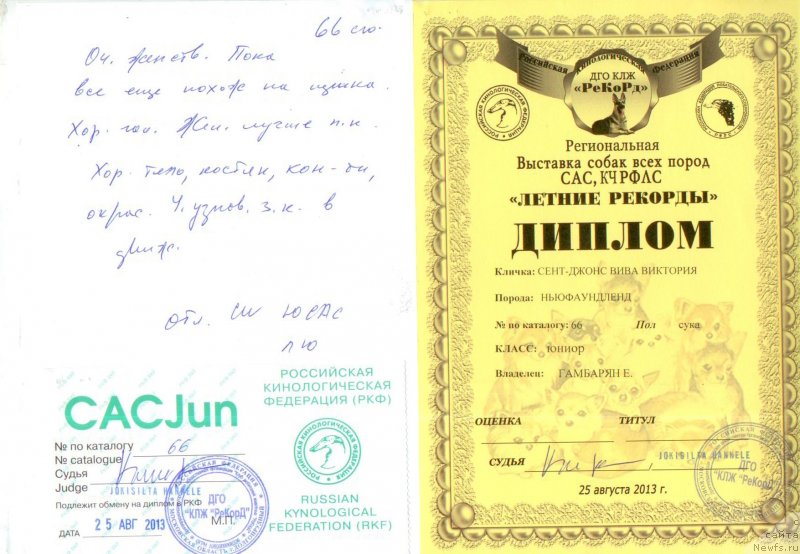 66 ю.
Оч. женств. Пока
все еще похож на щенка.
Хор. гол. Жел. лучше п.к.
Хор. тело, костяк, кон-ти,
окрас. Ч. узков. з.к. в
движ.
отл. CW ЮСАС
ЛЮ
CACJun
№ по каталогу 66
№ catalogue
Судья
Judge
JOKISILTA HANNELE
Подлежит обмену на диплом в РКФ
М.П.
ДАТА 25 АВГ 2013
ДГО
"КЛЖ "РеКорД"
РОССИЙСКАЯ
КИНОЛОГИЧЕСКАЯ
ФЕДЕРАЦИЯ (РКФ)
RUSSIAN
KYNOLOGICAL
FEDERATION (RKF)
Российская Кинологическая Федерация
ДГО КЛЖ
«РеКоРд»
РОССИЙСКАЯ КИНОЛОГИЧЕСКАЯ ФЕДЕРАЦИЯ
Региональная
Выставка собак всех пород
САС, КЧ РФЛС
«ЛЕТНИЕ РЕКОРДЫ»
ДИПЛОМ
Кличка: СЕНТ-ДЖОНС ВИВА ВИКТОРИЯ
Порода: НЬЮФАУНДЛЕНД
№ по каталогу: 66 Пол сука
КЛАСС: юниор
Владелец: ГАМБАРЯН Е.
ОЦЕНКА ТИТУЛ
СУДЬЯ JOKISILTA HANNELE
25 августа 2013 г.
ДГО
"КЛЖ "РеКорД"
сайта
Newfs.ru